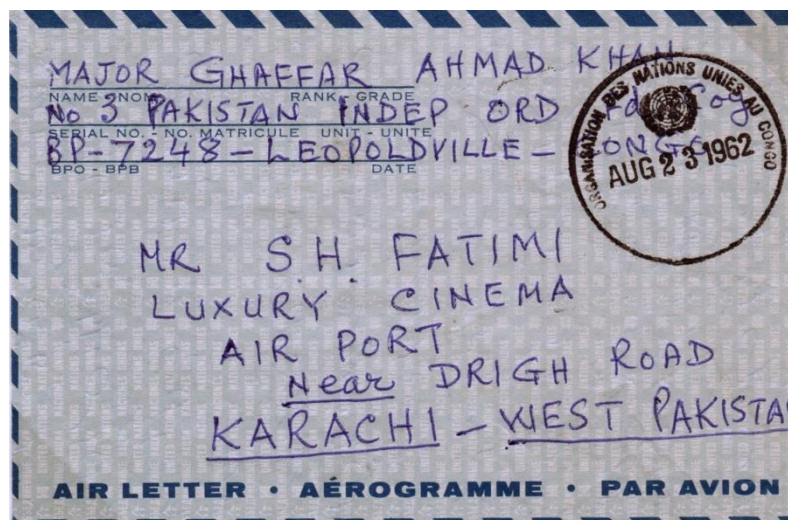 MAJOR GHAFFAR AHMAD KHAN
NAME - NOM RANK - GRADE
No 3 PAKISTAN INDEP ORD Fd Coy
SERIAL NO. - NO. MATRICULE UNIT - UNITE
BP-7248-LEOPOLDVILLE- CONGO
BPO - BPB DATE
ORGANISATION DES NATIONS UNIES AU CONGO
AUG 23 1962
MR S.H. FATIMI
LUXURY CINEMA
AIR PORT
Near DRIGH ROAD
KARACHI - WEST PAKISTA
AIR LETTER • AÉROGRAMME • PAR AVION